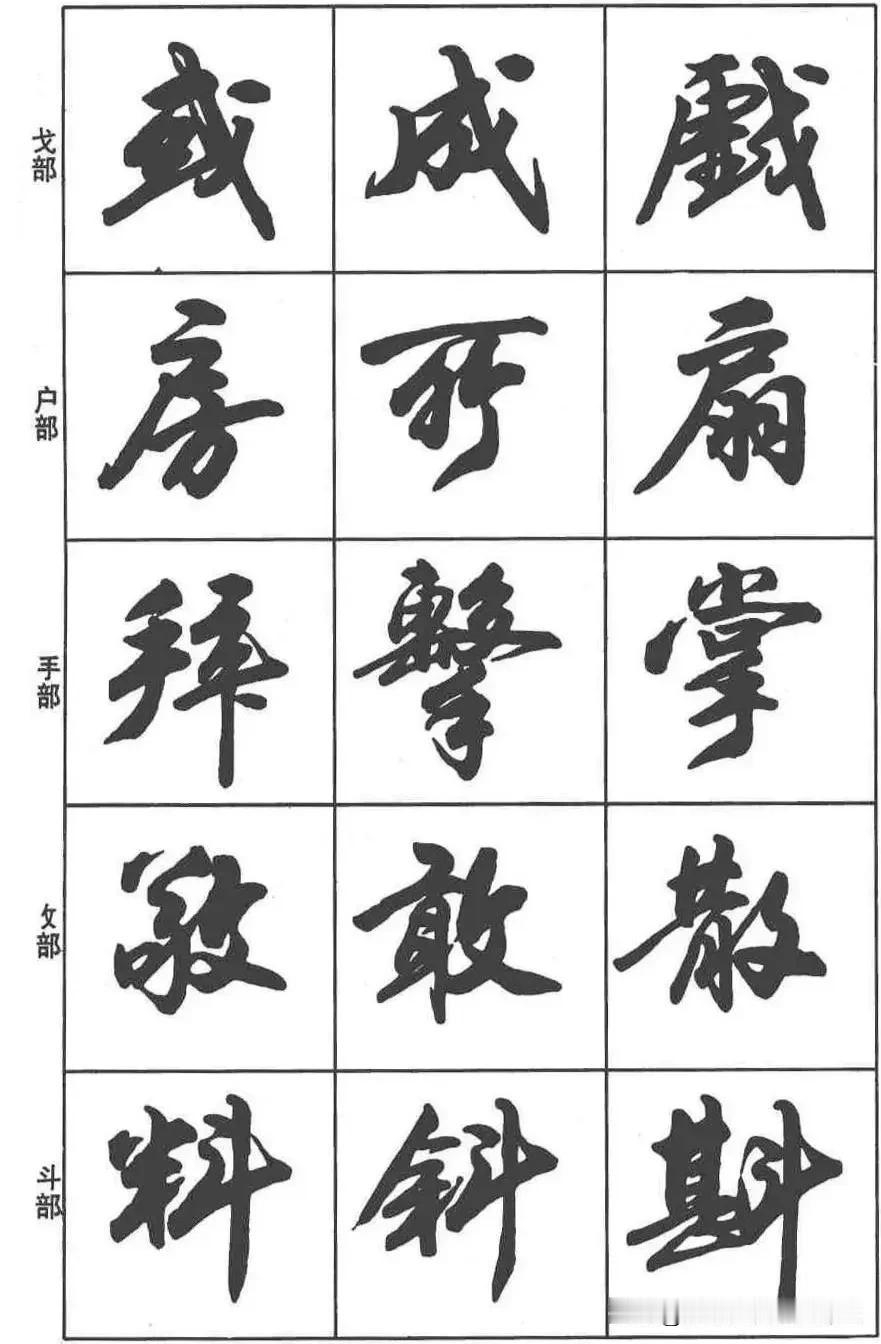 戈部 或 成 戲
户部 房 所 扇
手部 拜 擊 掌
攵部 敬 敢 散
斗部 料 斜 斟